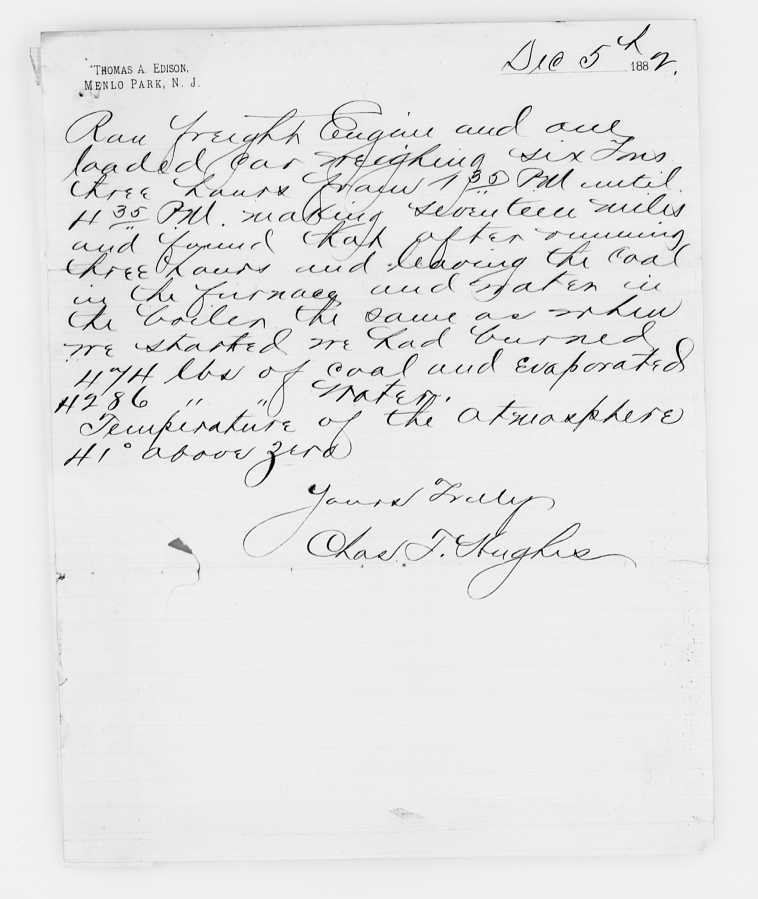 Thomas A. Edison,
Menlo Park, N. J.
Dec 5th 1882.
Ran freight Engine and one
loaded car weighing six Tons
three hours from 1 35 PM until
4 35 PM. making seventeen miles
and found that after running
three hours and leaving the coal
in the furnace and water in
the boiler the same as when
we started we had burned
474 lbs of coal and evaporated
4286 " " Water.
Temperature of the atmosphere
41° above zero
Yours Truly
Chas T. Hughes